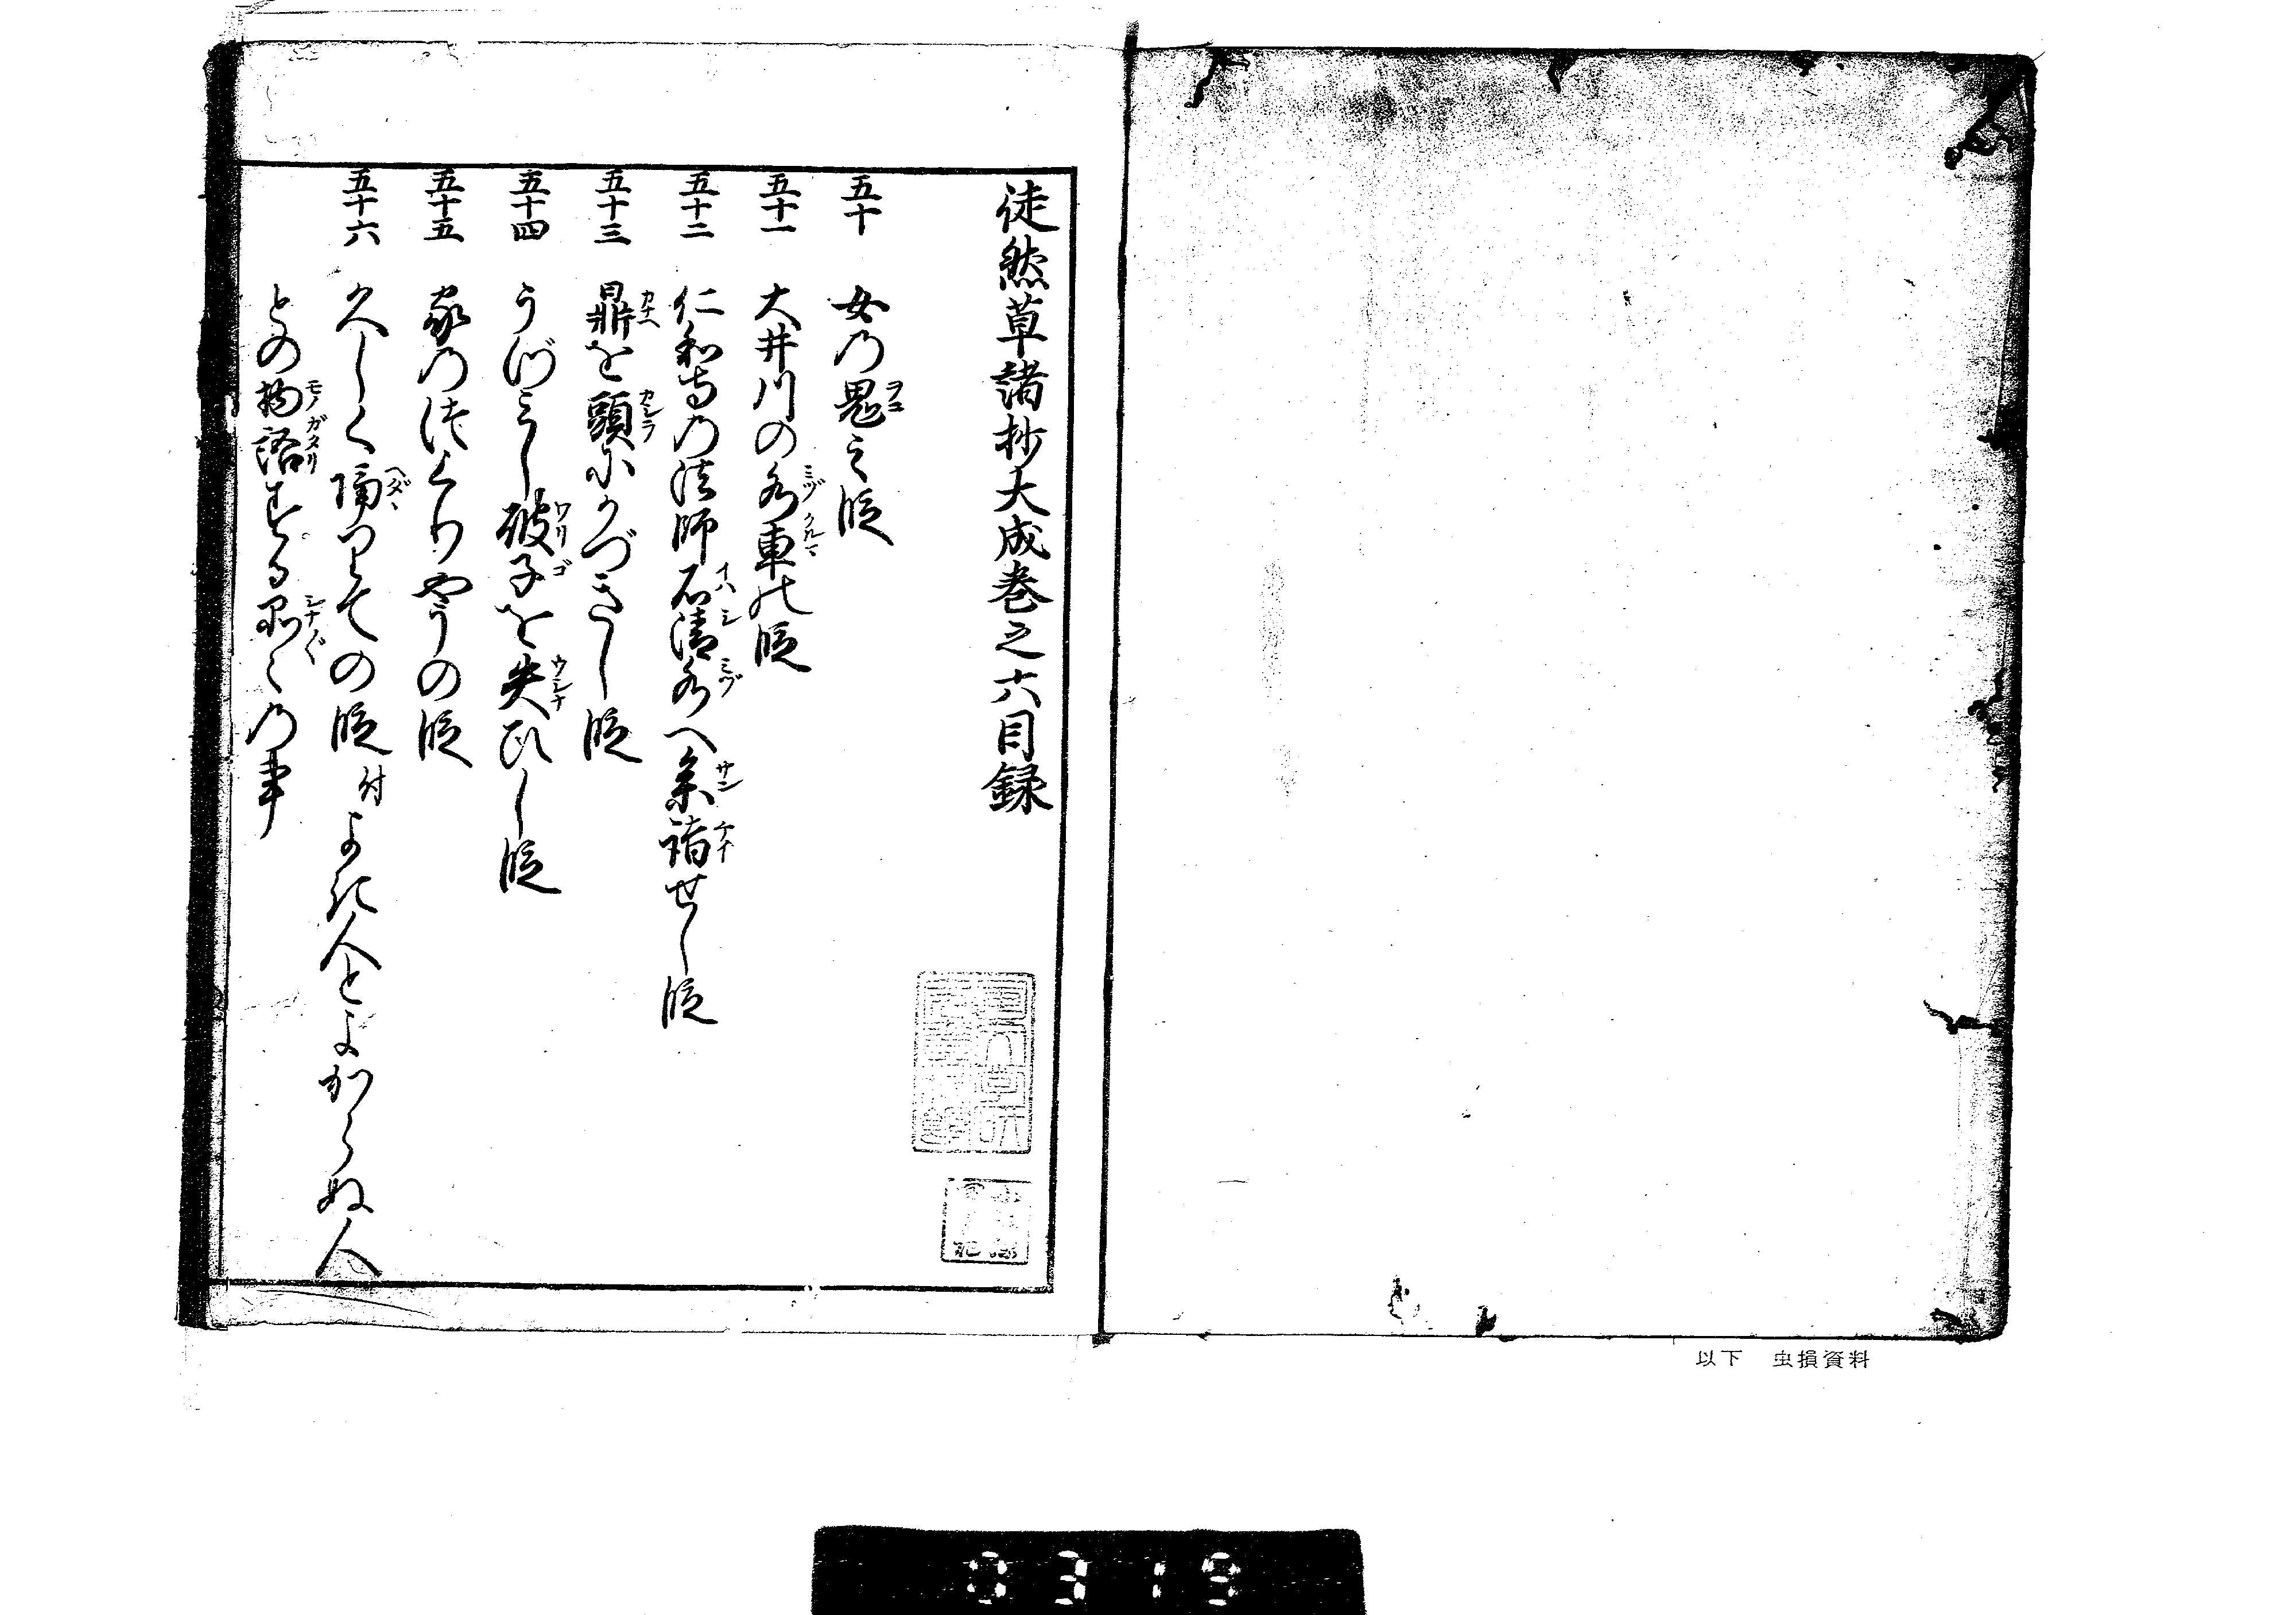 徒然草諸抄大成巻之六目録
五十 女の鬼之段
五十一 大井川の水車の段
五十二 仁和寺の法師石清水へ参詣せし段
五十三 鼎を頭にかづきし段
五十四 うづみし破子を失ひし段
五十五 家のつくりやうの段
五十六 久しく隔りての段 付よき人とよからぬ人
との物語する品々の事
以下 虫損資料
0319